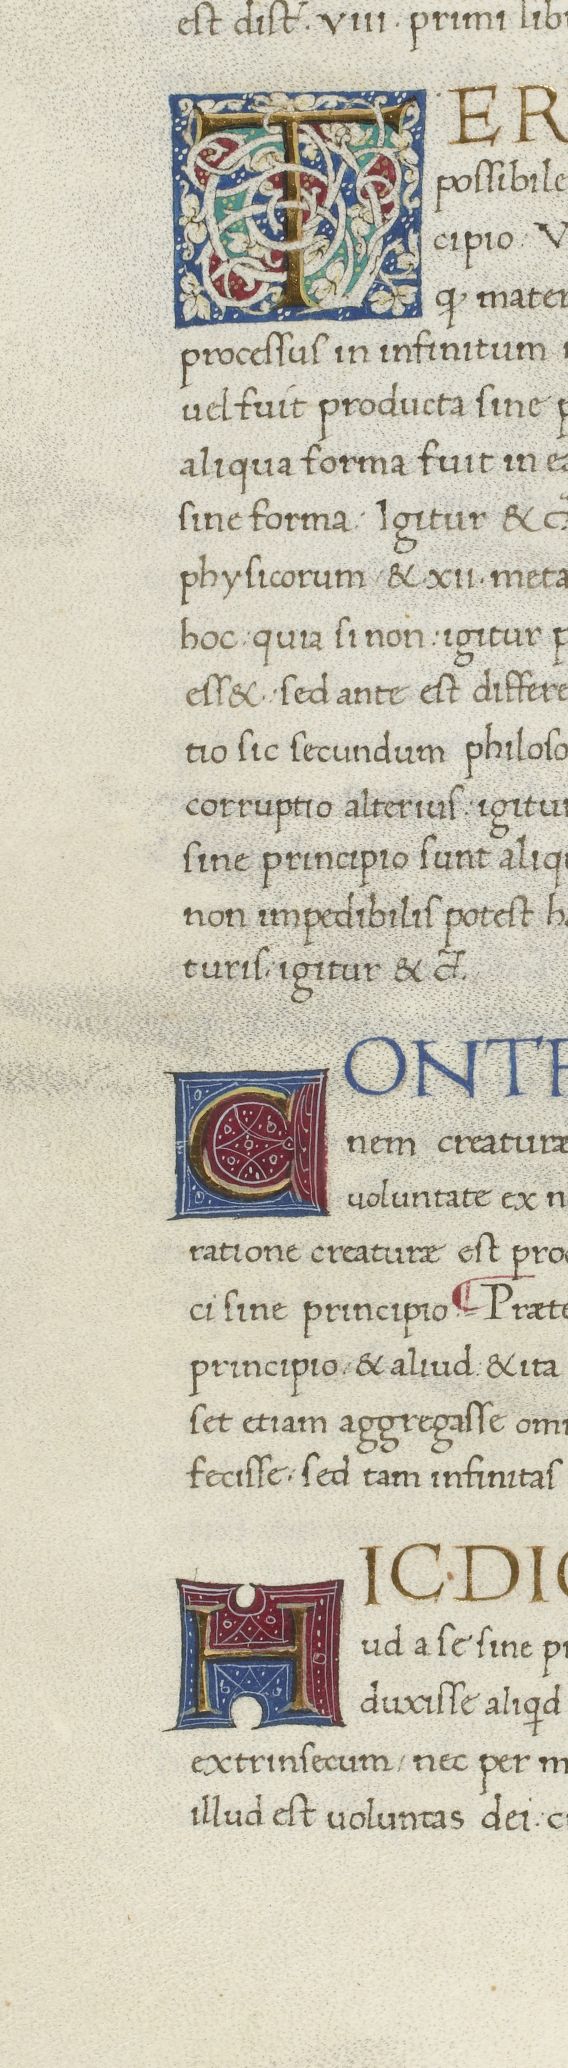 est dist. VIII. primi lib
TER
possibile
cipio V
q mater
processus in infinitum
uel fuit producta sine p
aliqua forma fuit in ea
sine forma. Igitur & c̄
physicorum & xii. meta
hoc. quia si non. igitur p
ess&. sed ante est differe
tio sic secundum philoso
corruptio alterius. igitur
sine principio sunt aliq
non impedibilis potest h
turis. igitur & c̄t.
CONTR
nem creaturæ
uoluntate ex n
ratione creaturæ est pro
ci sine principio. ¶ Præte
principio. & aliud. & ita
set etiam aggregasse omn
fecisse. sed tam infinitas
HIC. DIC
ud a se sine pr
duxisse aliqd
extrinsecum / nec per m
illud est uoluntas dei. c